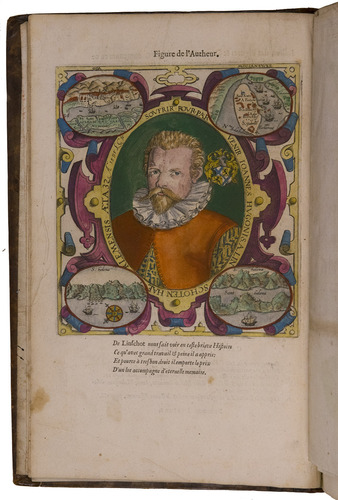 Figure de l'Autheur.
SOUFRIR POUR PARVENIR. IOANNES HUYGONIS A LINSCHOTEN HARLEMENSIS ÆTA.
De Linschot nous fait voir en ceste briefve Histoire
Ce qu'avec grand travail & peine il a appris:
Et pource à tresbon droit il emporte le pris
D'un los accompagné d'eternelle memoire.